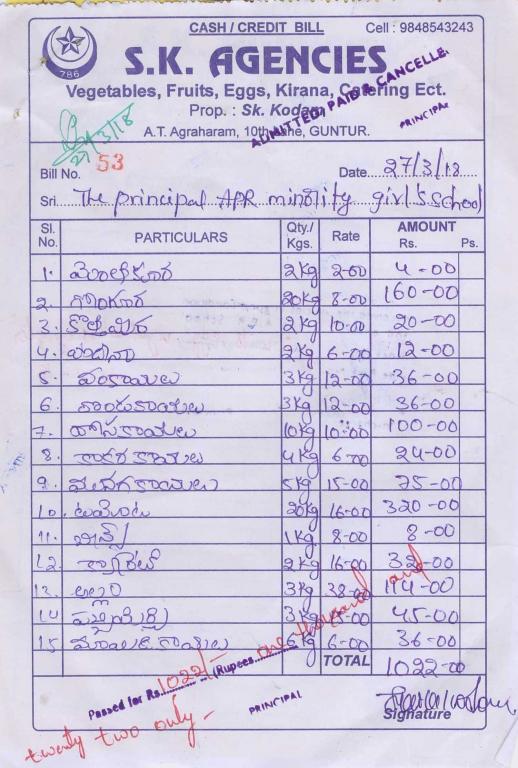 CASH / CREDIT BILL Cell : 9848543243
786
S.K. AGENCIES
Vegetables, Fruits, Eggs, Kirana, Catering Ect.
Prop. : Sk. Kodam
ADMITTED, PAID & CANCELLE
PRINCIPAL
A.T. Agraharam, 10th Lane, GUNTUR.
27/3/18
Bill No. 53 Date 27/3/18
Sri The principal APR minority girl's School
Sl. No. PARTICULARS Qty./ Kgs. Rate AMOUNT Rs. Ps.
1. 2kg 2-00 4-00
2. గోంగూర 20kg 8-00 160-00
3. కొత్తిమీర 2kg 10-00 20-00
4. పుదీనా 2kg 6-00 12-00
5. వంకాయలు 3kg 12-00 36-00
6. దొండకాయలు 3kg 12-00 36-00
7. దోసకాయలు 10kg 10-00 100-00
8. కాకరకాయలు 4kg 6-00 24-00
9. 5kg 15-00 75-00
10. టమోటా 20kg 16-00 320-00
11. బీన్స్ 1kg 8-00 8-00
12. క్యారెట్ 2kg 16-00 32-00
13. అల్లం 3kg 38-00 114-00
14 పచ్చిమిర్చి 3kg 15-00 45-00
15 6kg 6-00 36-00
TOTAL 1022-00
Passed for Rs. 1022/- (Rupees one thousand and
twenty two only -
PRINCIPAL
Signature